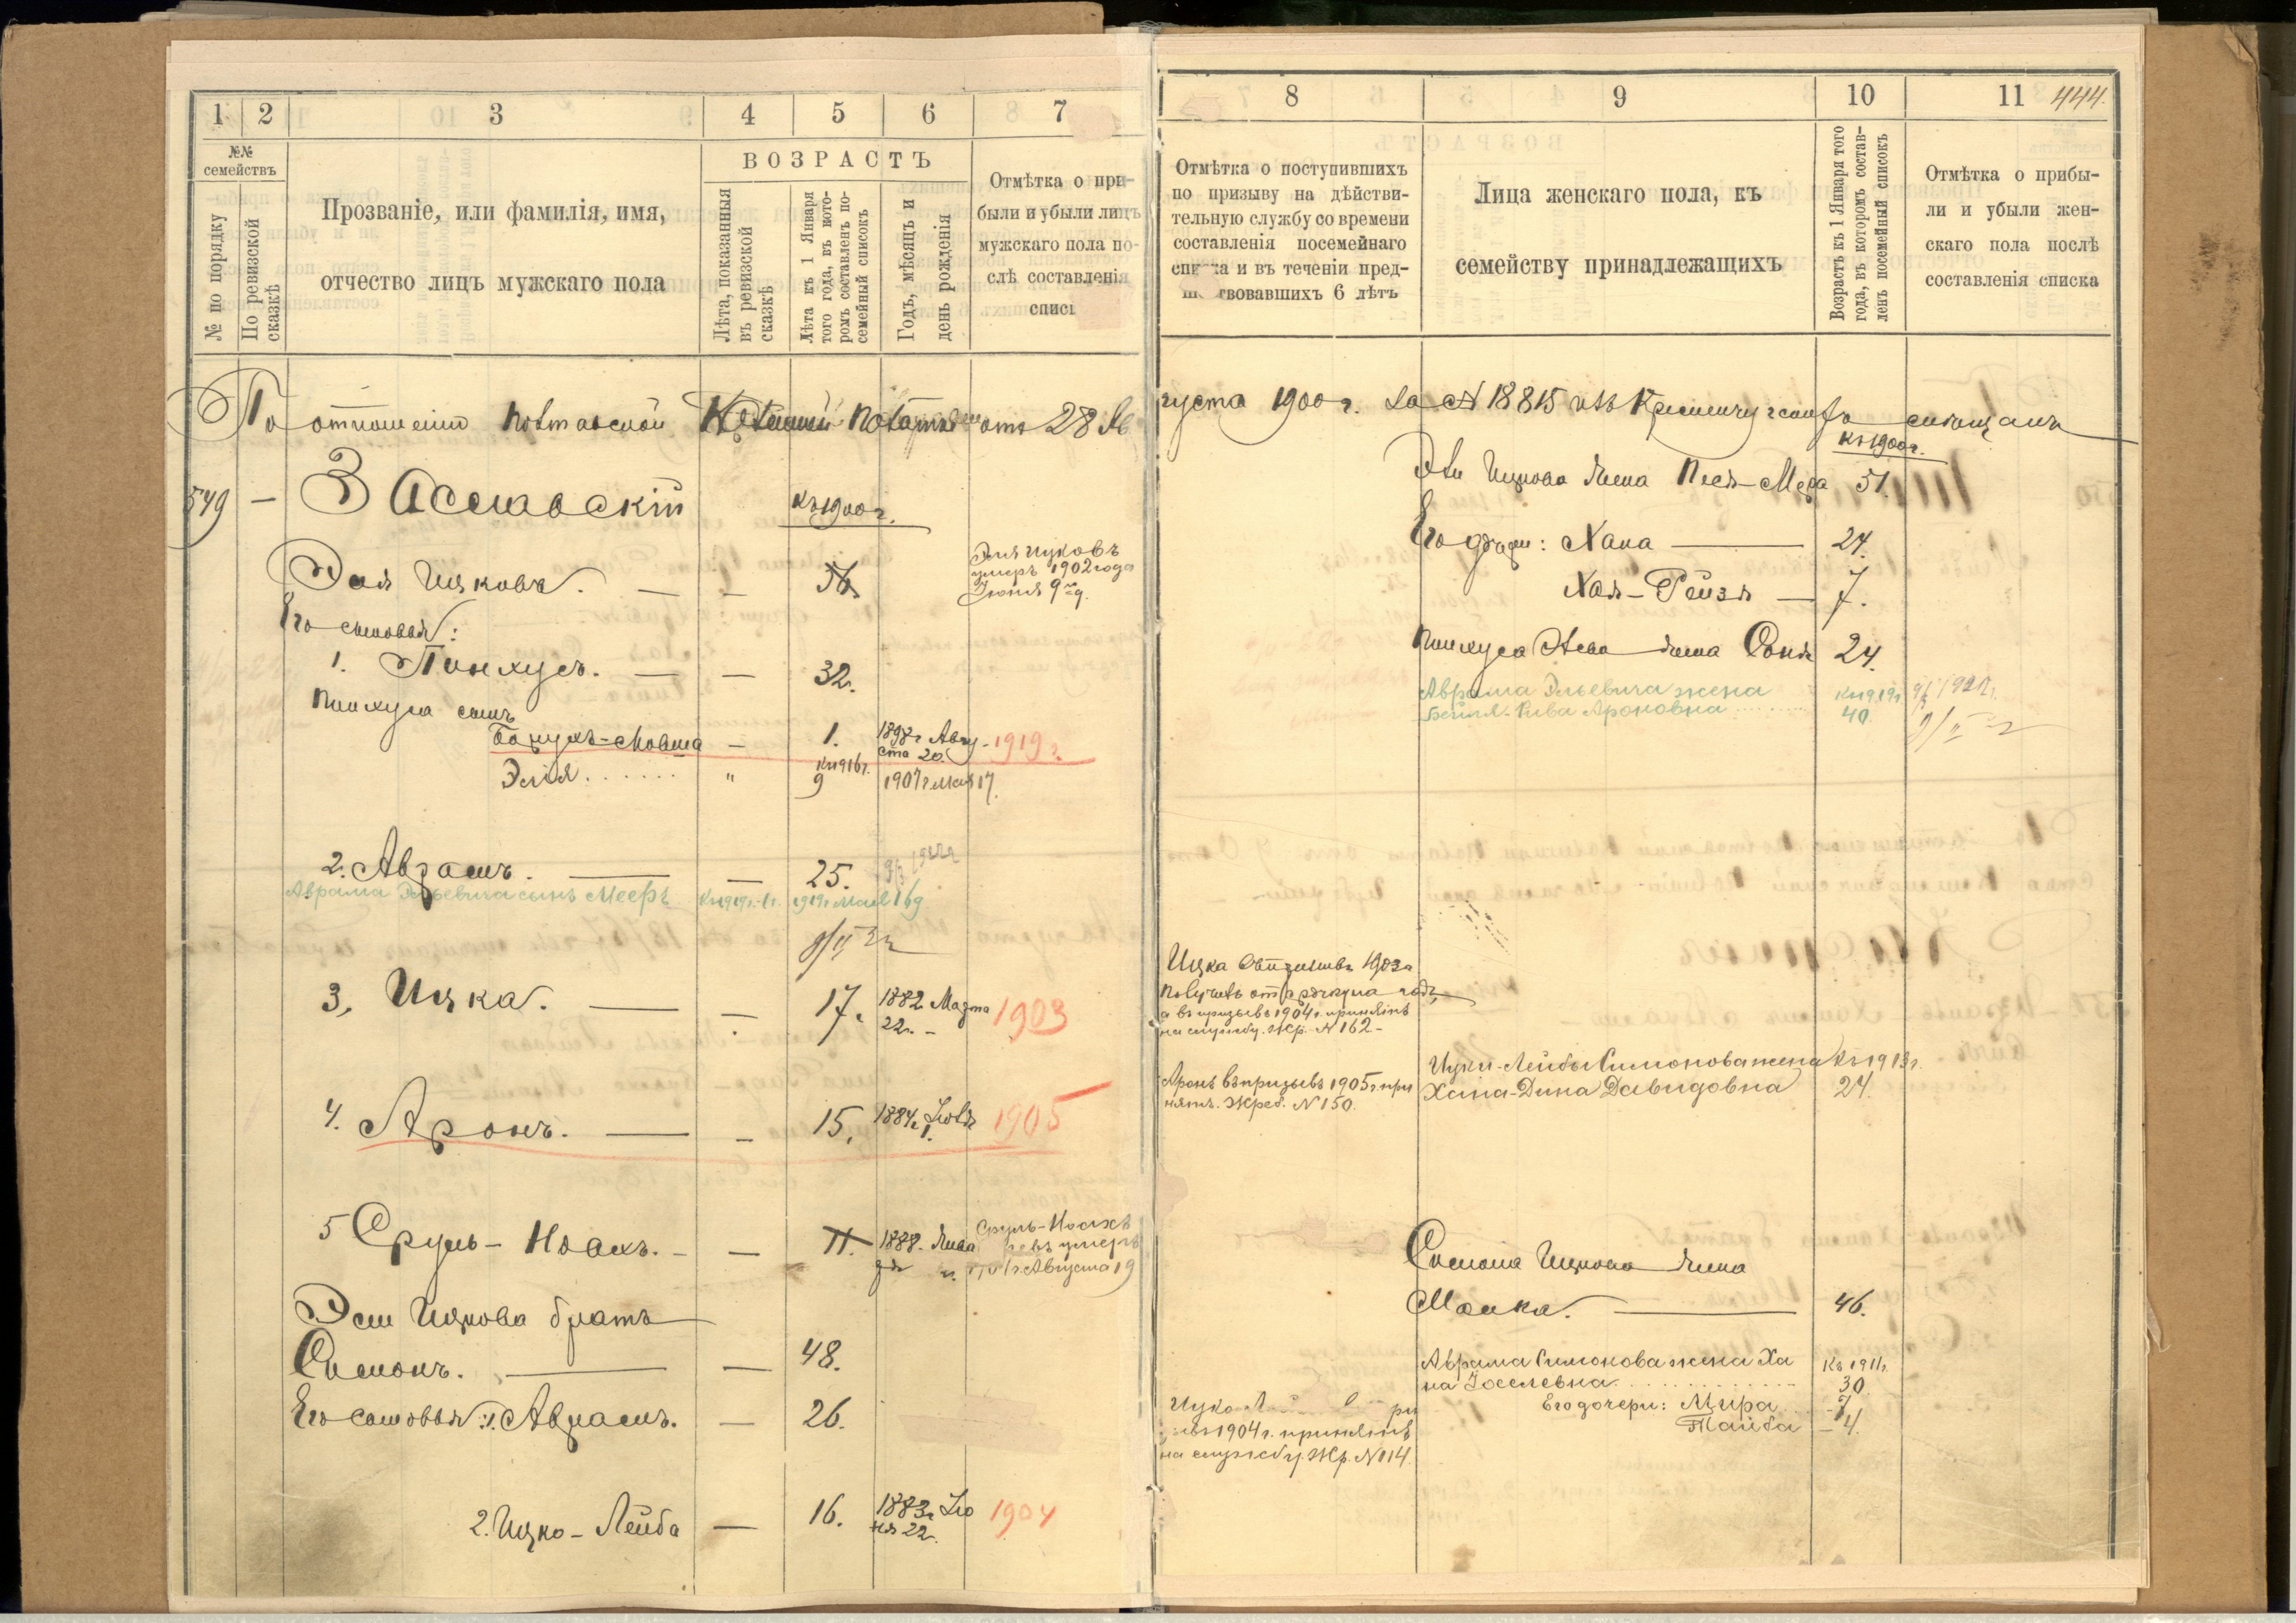 1 2 3 4 5 6 7
№№ семействъ
№ по порядку
По ревизской сказкѣ
Прозваніе, или фамилія, имя,
отчество лицъ мужскаго пола
ВОЗРАСТЪ
Лѣта, показанныя
въ ревизской
сказкѣ
Лѣта къ 1 Января
того года, въ кото-
ромъ составленъ по-
семейный списокъ
Годъ, мѣсяцъ и
день рожденія
Отмѣтка о при-
были и убыли лицъ
мужскаго пола по-
слѣ составленія
По отношенію Полтавской Казенной Палаты отъ 28 Ав
549 — Заславскій
Къ 1900 г.
Эля Ицковъ. — —
Эля Ицковъ
умеръ 1902 года
Іюня 9 д.
Его сыновья:
1. Пинхусъ. — — 32.
Пинхуса сынъ
Борухъ-Мовша — 1. 1898 г. Авгу- 1919 г.
ста 20.
Къ 1916 г.
Эліа " 9 1907 г. мая 17.
2. Аврамъ. — — 25.
Аврама Эльевича сынъ Мееръ Къ 1919 г. 1919 г. Мая 16 д
3. Ицка. — — 17. 1882 Марта 1903
22. —
4. Аронъ. — — 15. 1884 г. Іюля 1905
1.
5 Сруль-Ноахъ. — — 11. 1888. Янва
Сруль-Ноахъ
умеръ
Августа 19
Эли Ицкова братъ
Симонъ. — — 48.
Его сыновья: 1. Аврамъ. — 26.
2. Ицко-Лейба — 16. 1883 г. Ію 1904
ня 22.
8 9 10 11 444.
Отмѣтка о поступившихъ
по призыву на дѣйстви-
тельную службу со времени
составленія посемейнаго
и въ теченіи пред-
6 лѣтъ
Лица женскаго пола, къ
семейству принадлежащихъ
Возрастъ къ 1 Января того
года, въ которомъ состав-
ленъ посемейный списокъ
Отмѣтка о прибы-
ли и убыли жен-
скаго пола послѣ
составленія списка
густа 1900 г. за № 18815
Къ 1900 г.
Эли Ицкова жена Песя-Мера 51.
Его дочери: Хана — 24.
Хая-Рейзя — 7.
Пинхуса жена Соня 24.
Аврама Эльевича жена Къ 1919 г.
Бейля-Рива Ароновна 40
Ицка 1903 г.
получилъ отсрочку на годъ,
а въ призывъ 1904 г. принятъ
на службу. Жр. N 162 —
Аронъ въ призывъ 1905 г. при
нятъ. Жреб. N 150.
Ицки-Лейбы Симонова жена Къ 1913 г.
Хана-Дина Давидовна 24.
Симона Ицкова жена
Малка. — 46.
Аврама Симонова жена Ха Къ 1911 г.
на Іоселевна 30
Его дочери: Мира 7
Тайба — 4.
Ицко
1904 г. принятъ
на службу. Жр. N 114.